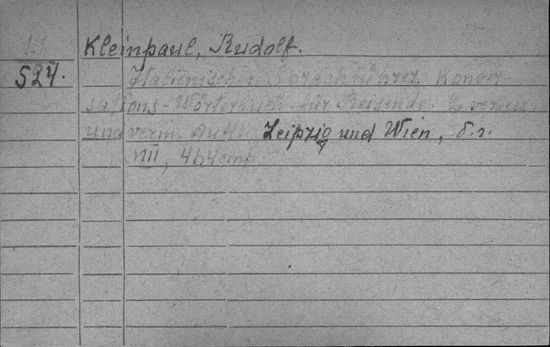 19 Kleinpaul, Rudolf.
524. Italienischer Sprachführer. Konver-
sations-Wörterbuch für Reisende. 2. verbess.
und verm. Aufl. Leipzig und Wien, б.г.
VIII, 464 стр.